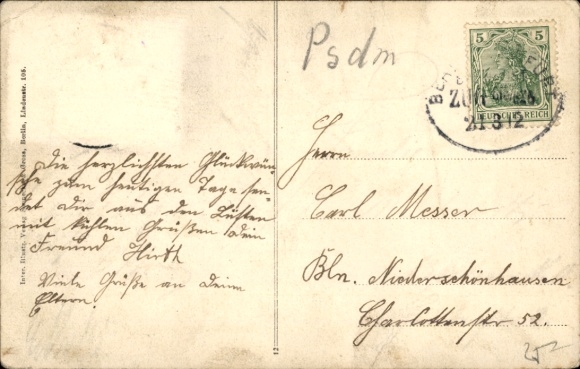 Psdm
5 5
DEUTSCHES REICH
ZUG
21 3 12
Die herzlichsten Glückwün-
sche zum heutigen Tage sen-
det Dir aus den Lüften
mit kühlen Grüßen Dein
Freund Hirth
Viele Grüße an Deine
Eltern.
Herrn
Carl Messer
Bln. Niederschönhausen
Charlottenstr 52.
Berlin, Lindenstr. 108.
12